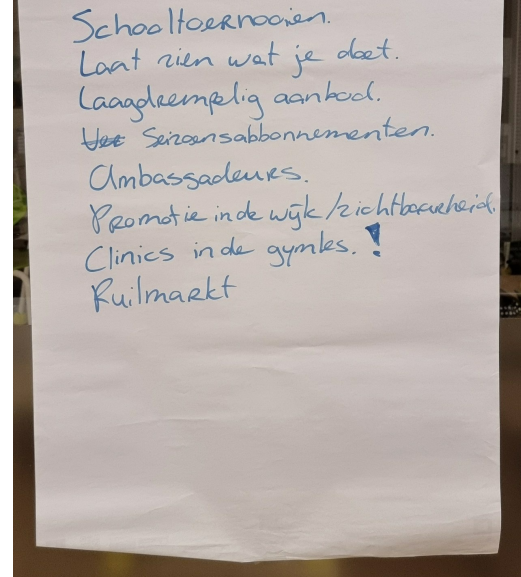 Schooltoernooien.
Laat zien wat je doet.
Laagdrempelig aanbod.
Seizoensabbonnementen.
Ambassadeurs.
Promotie in de wijk/zichtbaarheid.
Clinics in de gymles. !
Ruilmarkt